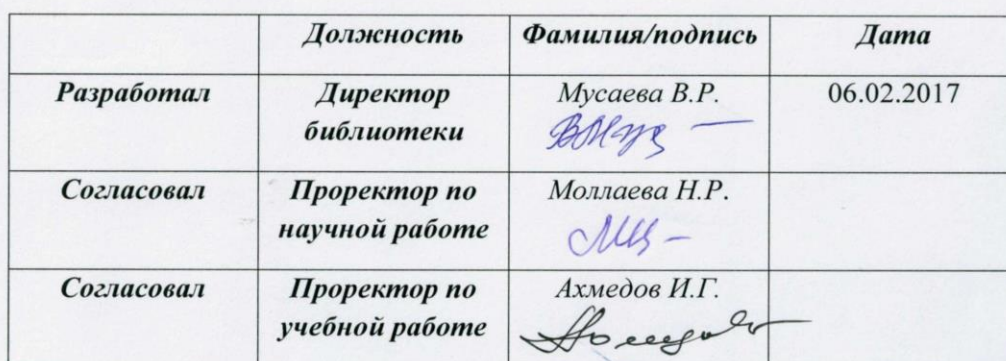 Должность Фамилия/подпись Дата
Разработал Директор библиотеки Мусаева В.Р. 06.02.2017
Согласовал Проректор по научной работе Моллаева Н.Р.
Согласовал Проректор по учебной работе Ахмедов И.Г.